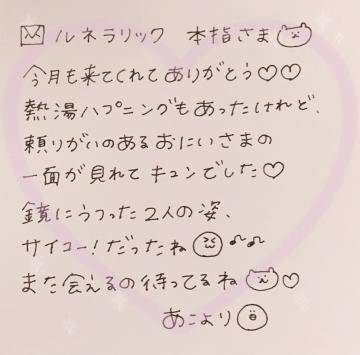 ルネラリック 本指さま
今月も来てくれてありがとう♡♡
熱湯ハプニングもあったけれど、
頼りがいのあるおにいさまの
一面が見れてキュンでした♡
鏡にうつった2人の姿、
サイコー!だったね♪♪
また会えるの待ってるね♡
あこより